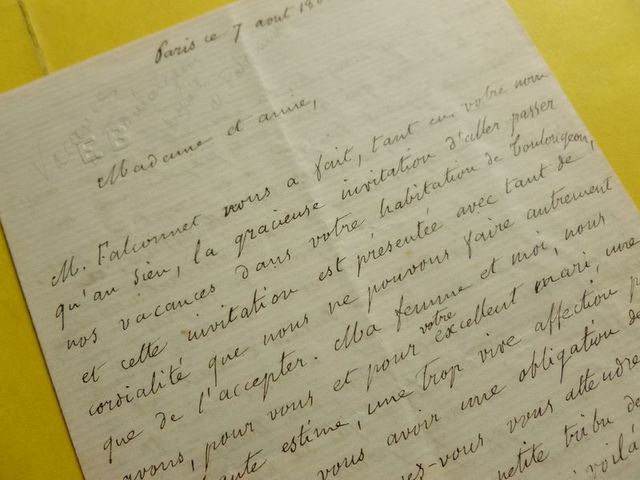 Paris ce 7 aout 18
EB
Madame et amie,
M. Falconnet nous a fait, tant en votre nom
qu'au sien, la gracieuse invitation d'aller passer
nos vacances dans votre habitation de Coulougeon,
et cette invitation est présentée avec tant de
cordialité que nous ne pouvons faire autrement
que de l'accepter. Ma femme et moi, nous
avons, pour vous et pour votre excellent mari, une
haute estime, une trop vive affection p
vous avoir une obligation de
ez-vous vous attendre
petite tribu de
voilà